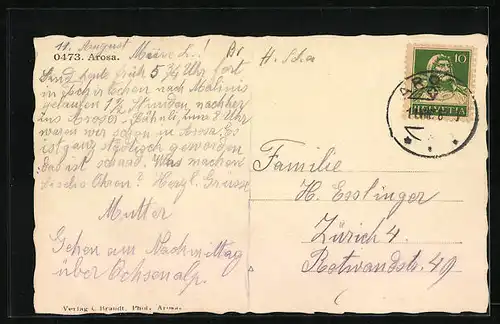 11. August
0473. Arosa.
Meine L.!
Sind heute früh 5 ¾ Uhr fort
in Tschiertschen nach Molinis
gelaufen 1 ½ Stunden, nachher
ins Aroser-Bähnli, um 8 Uhr
waren wir schon in Arosa. Es
ist ganz städtisch geworden
das ist schade. Was machen
Ohren? Herzl. Grüsse
Mutter
Gehen am Nachmittag
über Ochsenalp.
Verlag C. Brandt, Phot., Arosa.
10
HELVETIA
Familie
H. Esslinger
Zürich 4.
Rotwandstr. 49